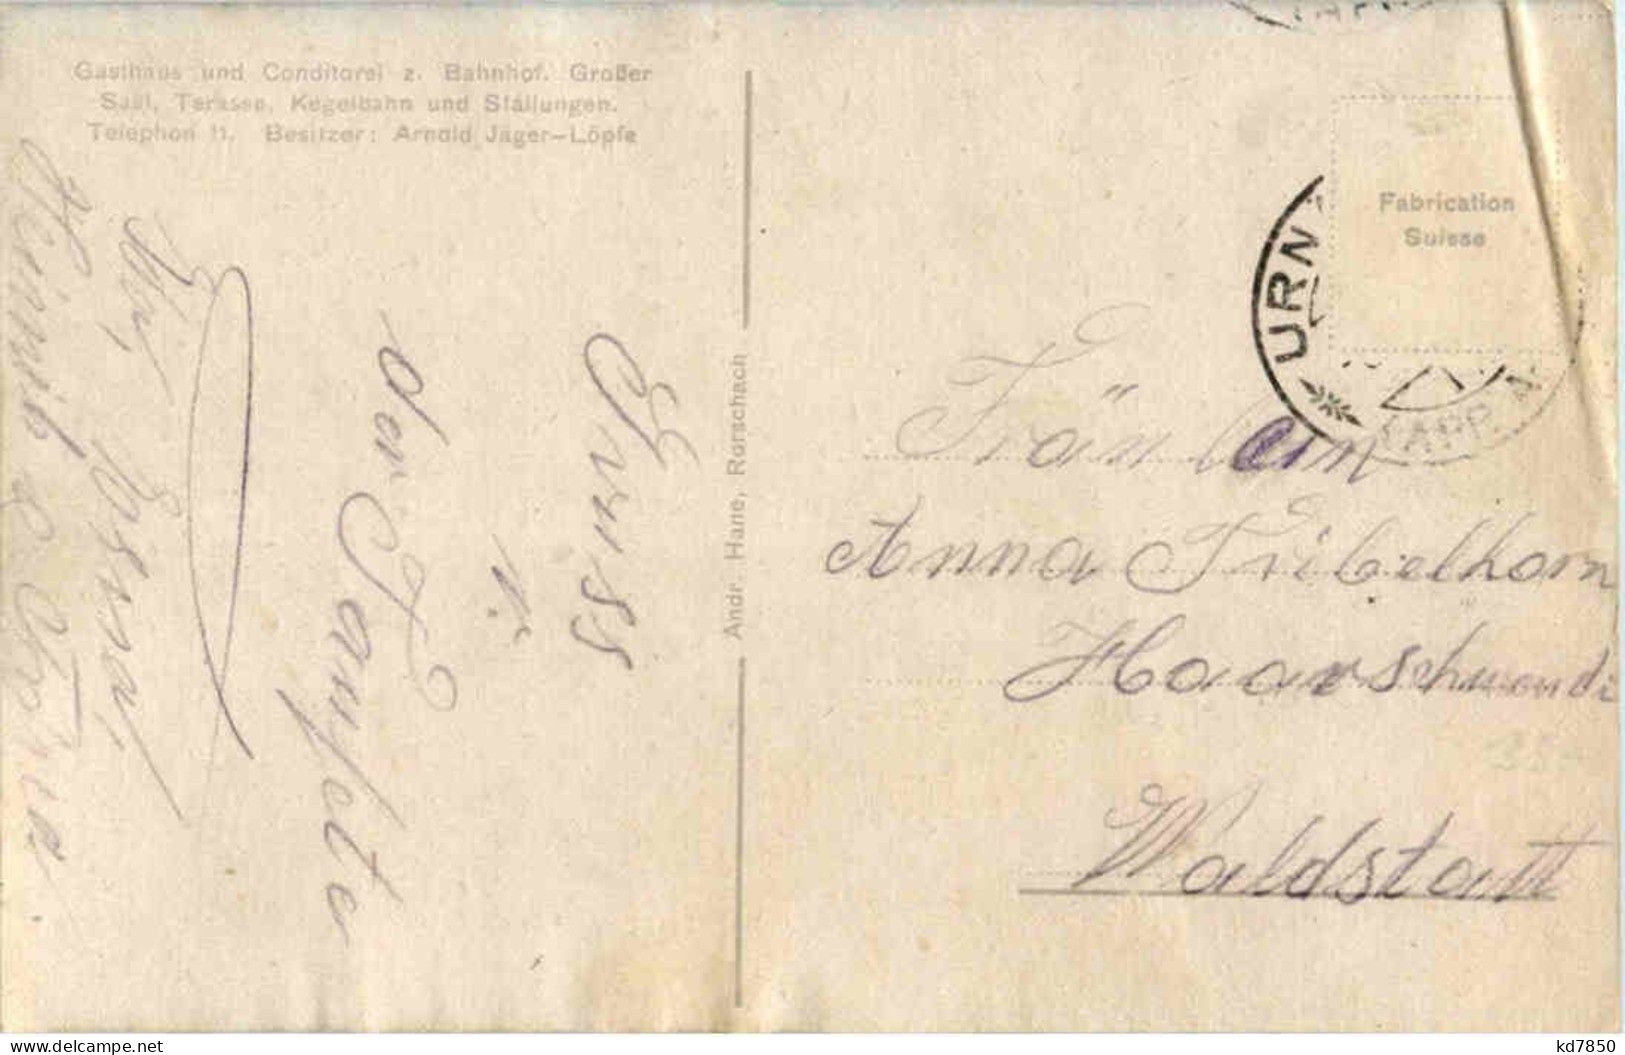 Gasthaus und Conditorei z. Bahnhof. Großer
Saal, Terasse, Kegelbahn und Stallungen.
Telephon 11. Besitzer: Arnold Jäger-Löpfe
Gruss
v.
der Taufete
Frl.
Heinrib &
Andr. Hane, Rorschach
Fabrication
Suisse
URN
(APP
Fräulein
Anna Fribelhorn
Haarschwendi
Waldstatt
35-
kd7850